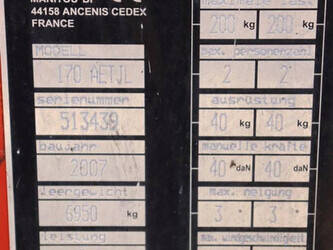 MANITOU BF
44158 ANCENIS CEDEX
FRANCE
MODELL
170 AETJL
seriennummer
513439
baujahr
2007
leergewicht
6950 kg
leistung
maximale last
200 kg 200 kg
max. personenzahl
2 2
ausrüstung
40 kg 40 kg
manuelle kräfte
40 daN 40 daN
max. neigung
3 3
max. windgeschwindigkeit